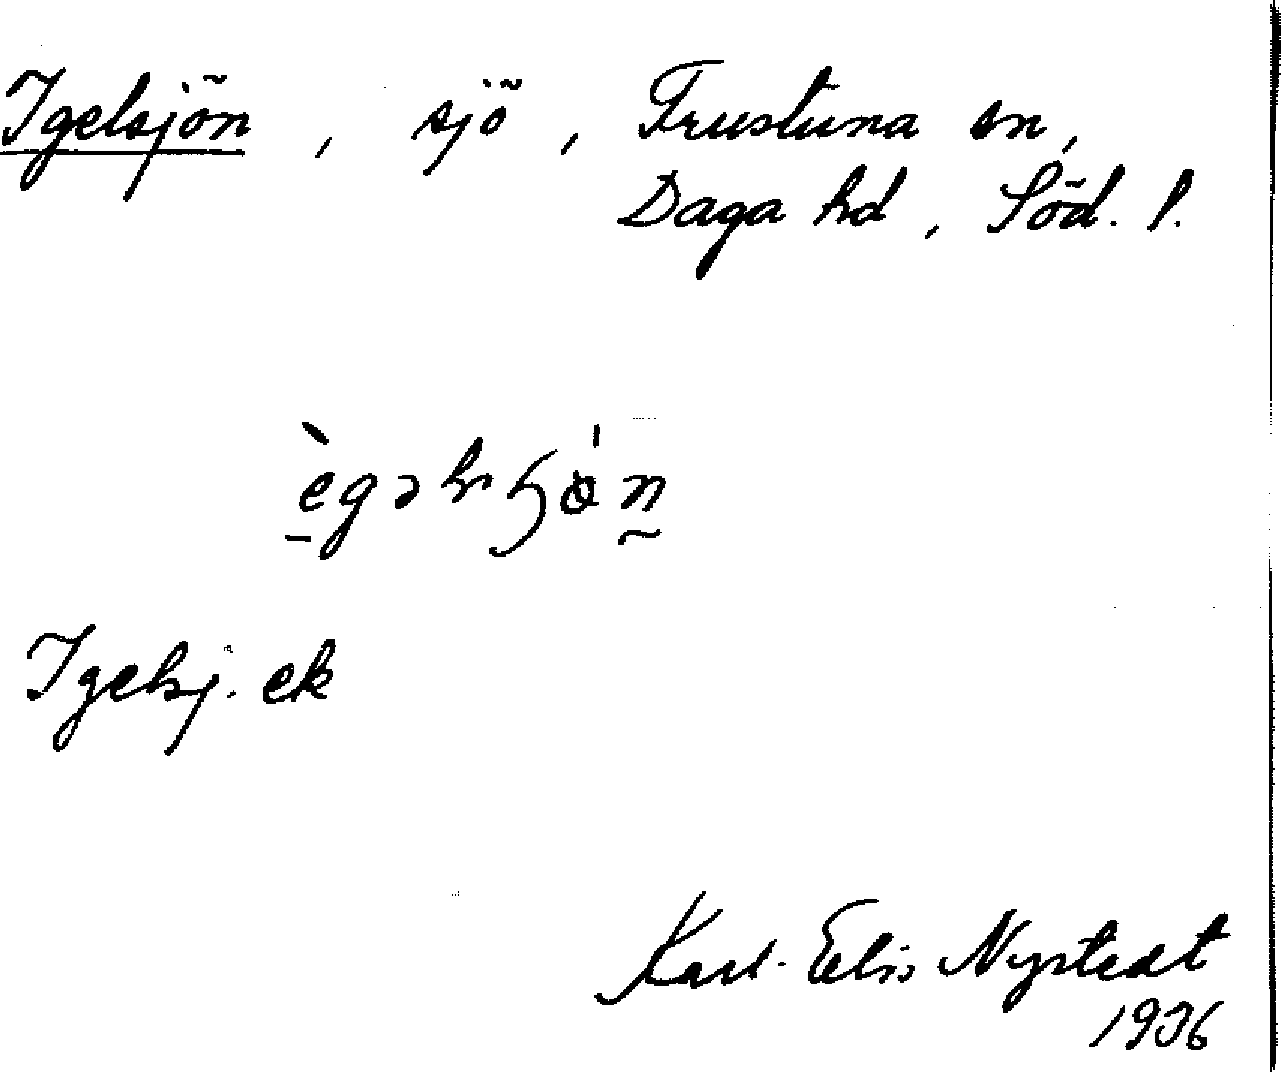 Igelsjön, sjö, Frustuna sn,
Daga hd, Söd. l.
Igelsj. ek
Karl-Elis Nystedt
1936